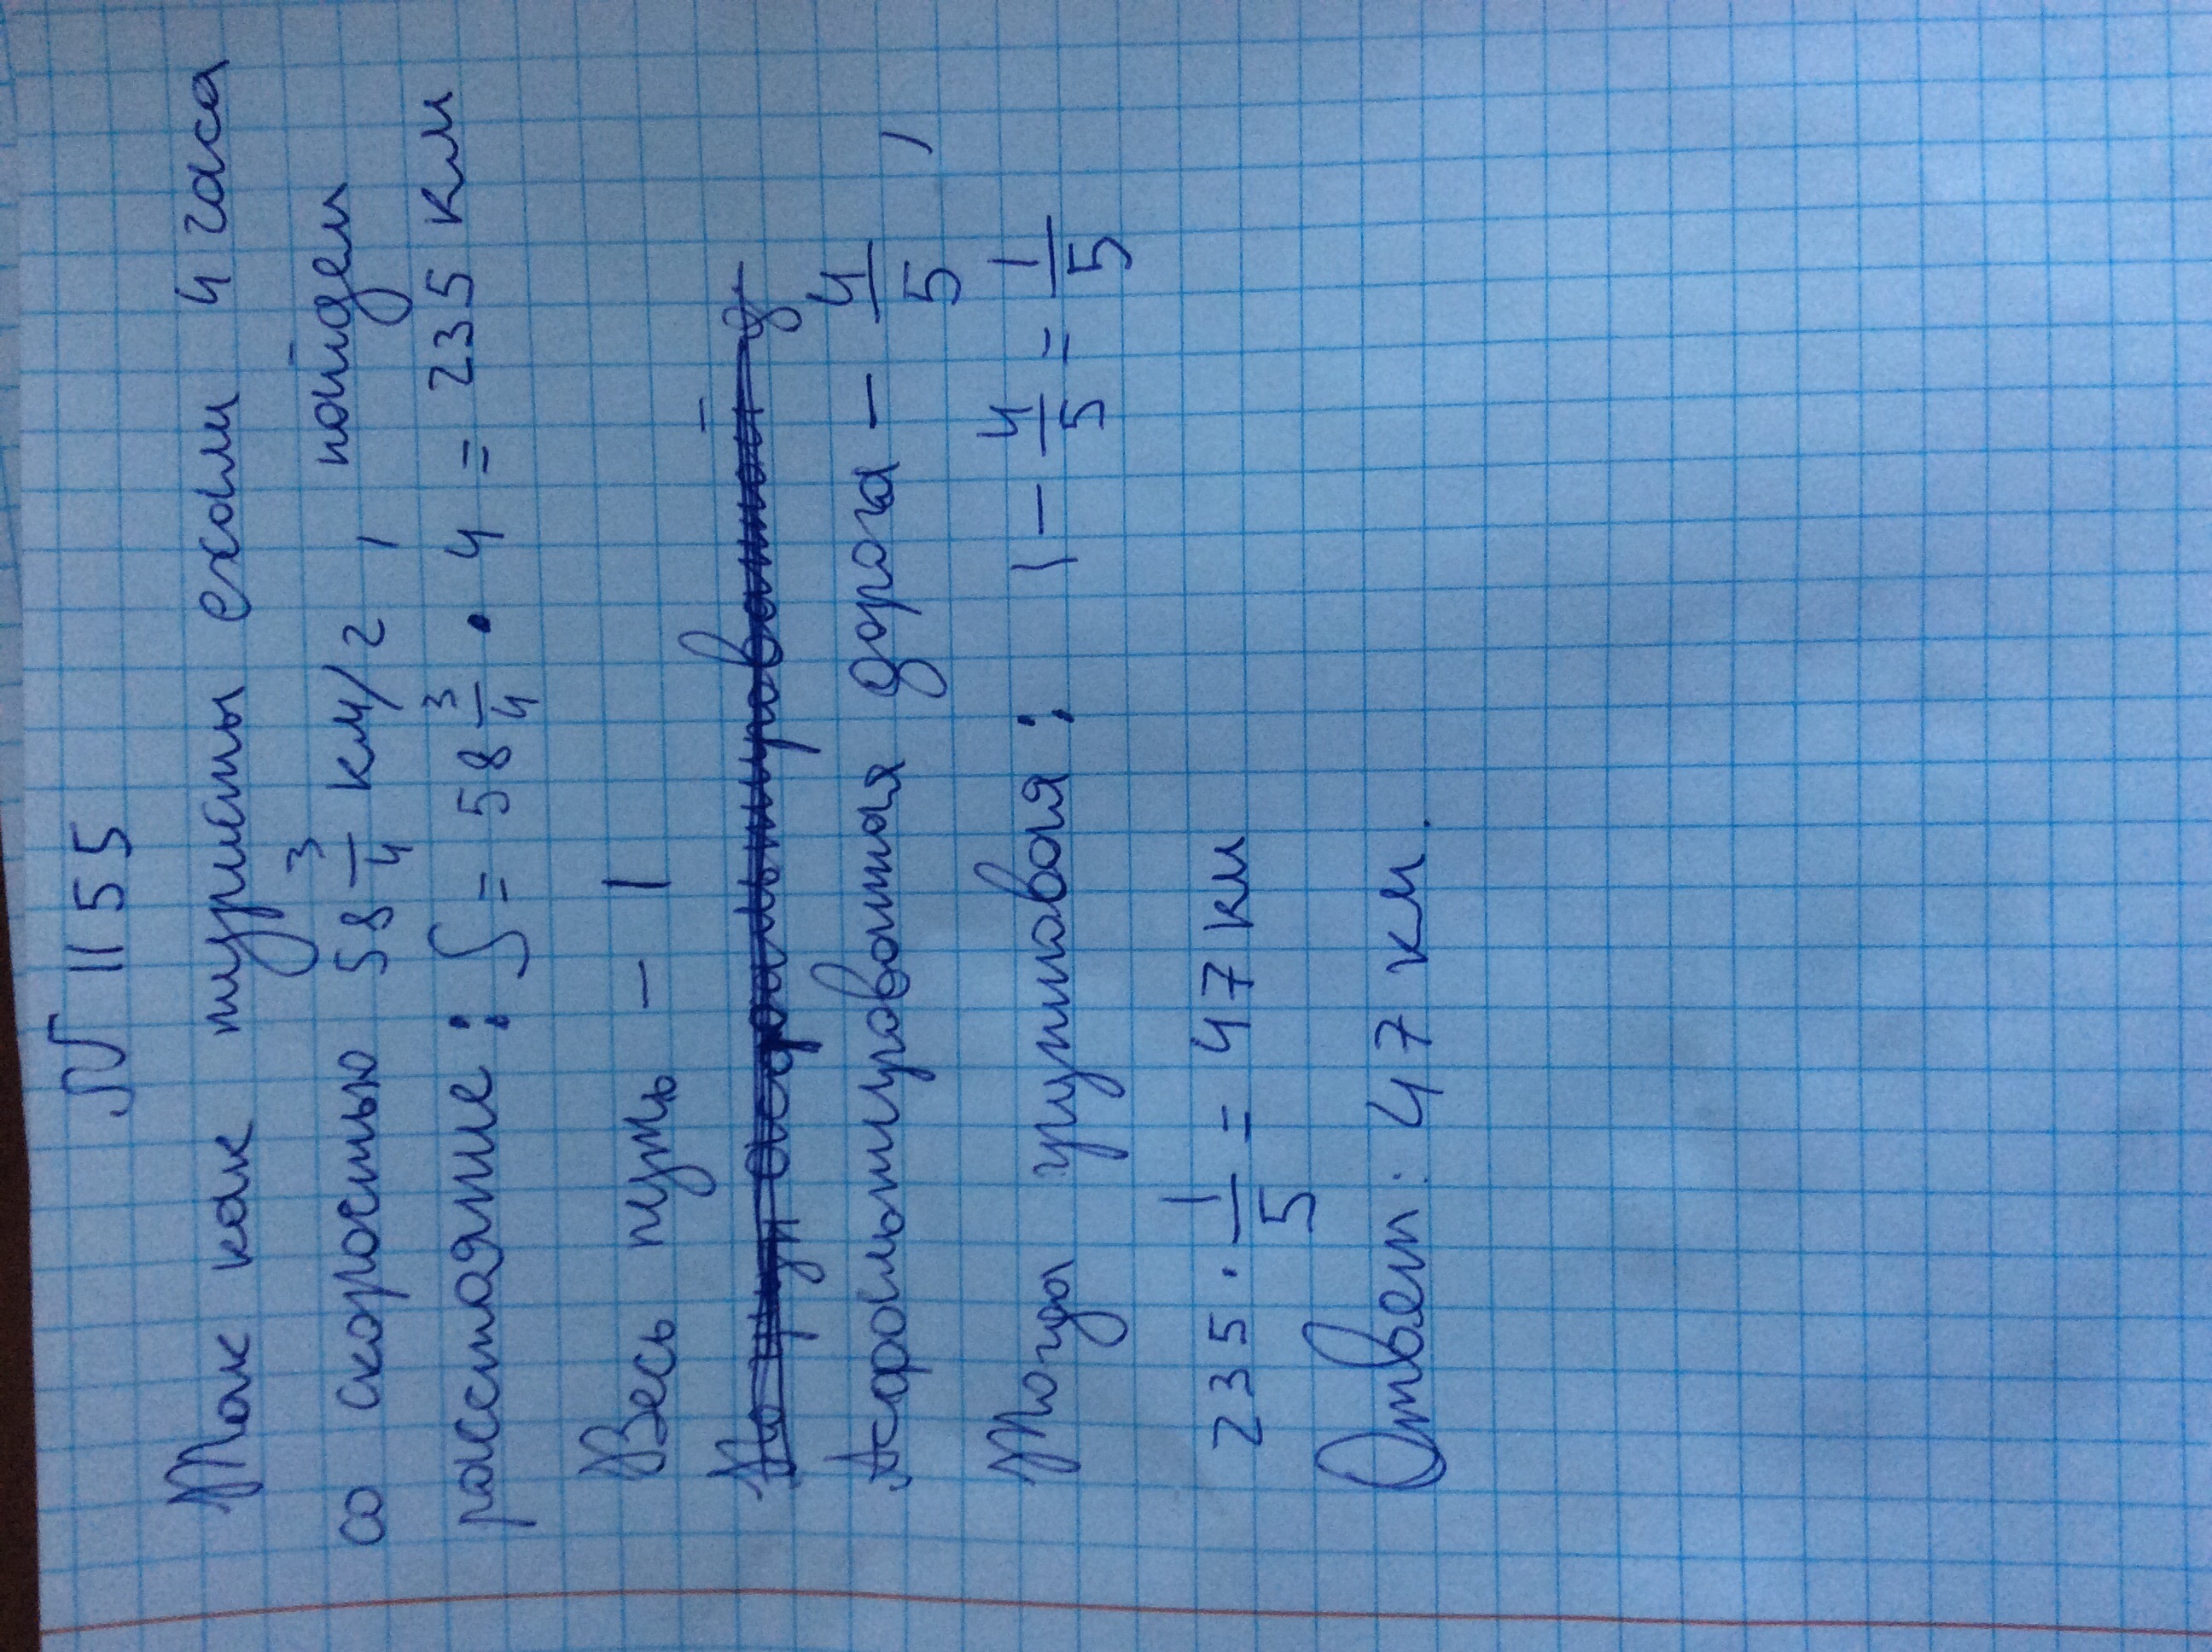 № 1155
Так как туристы ехали 4 часа
со скоростью 58 3/4 км/ч, найдем
расстояние: S = 58 3/4 · 4 = 235 км
Весь путь – 1
Асфальтированная дорога – 4/5,
Тогда грунтовая: 1 – 4/5 = 1/5
235 · 1/5 = 47 км
Ответ: 47 км.